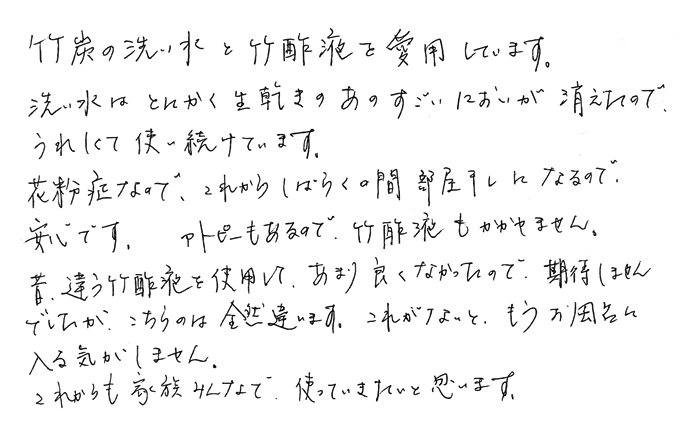 竹炭の洗い水と竹酢液を愛用しています。
洗い水はとにかく生乾きのあのすごいにおいが消えたので、
うれしくて使い続けています。
花粉症なので、これからしばらくの間部屋干しになるので、
安心です。 アトピーもあるので、竹酢液もかかせません。
昔、違う竹酢液を使用して、あまり良くなかったので、期待しません
でしたが、こちらのは全然違います。これがないと、もうお風呂に
入る気がしません。
これからも家族みんなで、使っていきたいと思います。